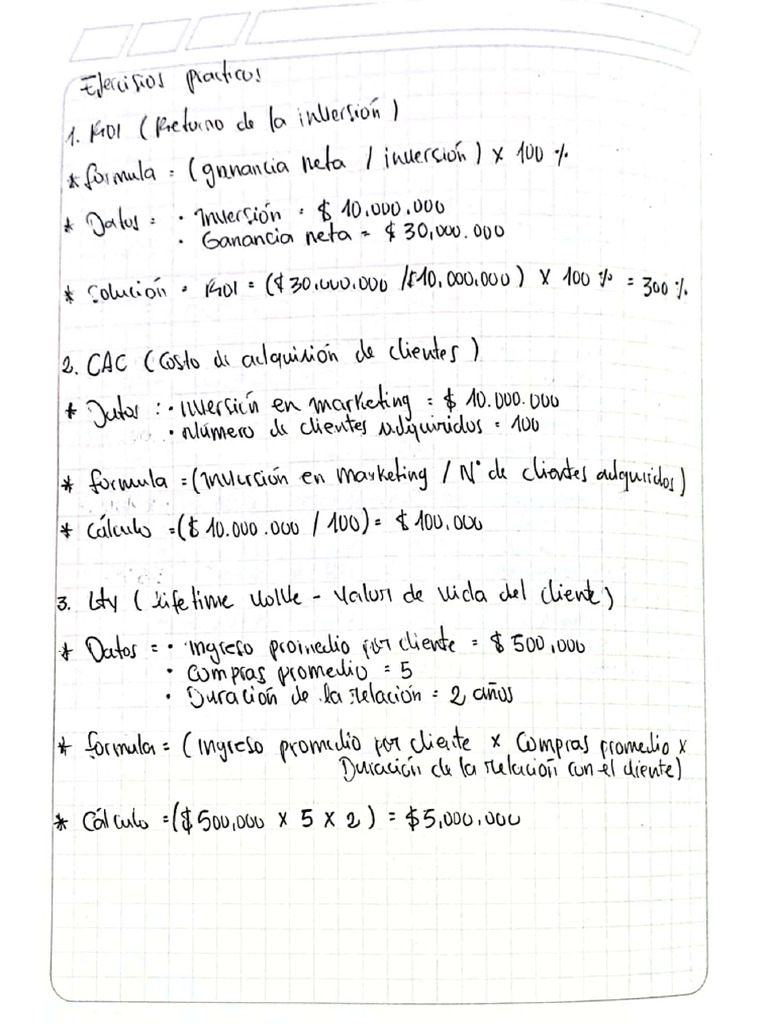 Ejercisios practicos
1. ROI (Retorno de la inversión)
* formula = (ganancia neta / inversión) x 100 %
* Datos = · Inversión = $ 10.000.000
· Ganancia neta = $ 30,000.000
* Solución = ROI = ($30.000.000 / $10,000,000) x 100 % = 300 %
2. CAC (Costo de adquisición de clientes)
* Datos : · Inversión en marketing = $ 10.000.000
· Número de clientes adquiridos = 100
* formula = (Inversión en marketing / N° de clientes adquiridos)
* Cálculo = ($ 10.000.000 / 100) = $ 100,000
3. Ltv (Lifetime Value - Valor de vida del cliente)
* Datos = · Ingreso promedio por cliente = $ 500,000
· Compras promedio = 5
· Duración de la relación = 2 años
* formula = (Ingreso promedio por cliente x Compras promedio x
Duración de la relación con el cliente)
* Cálculo = ($500,000 x 5 x 2) = $5,000,000